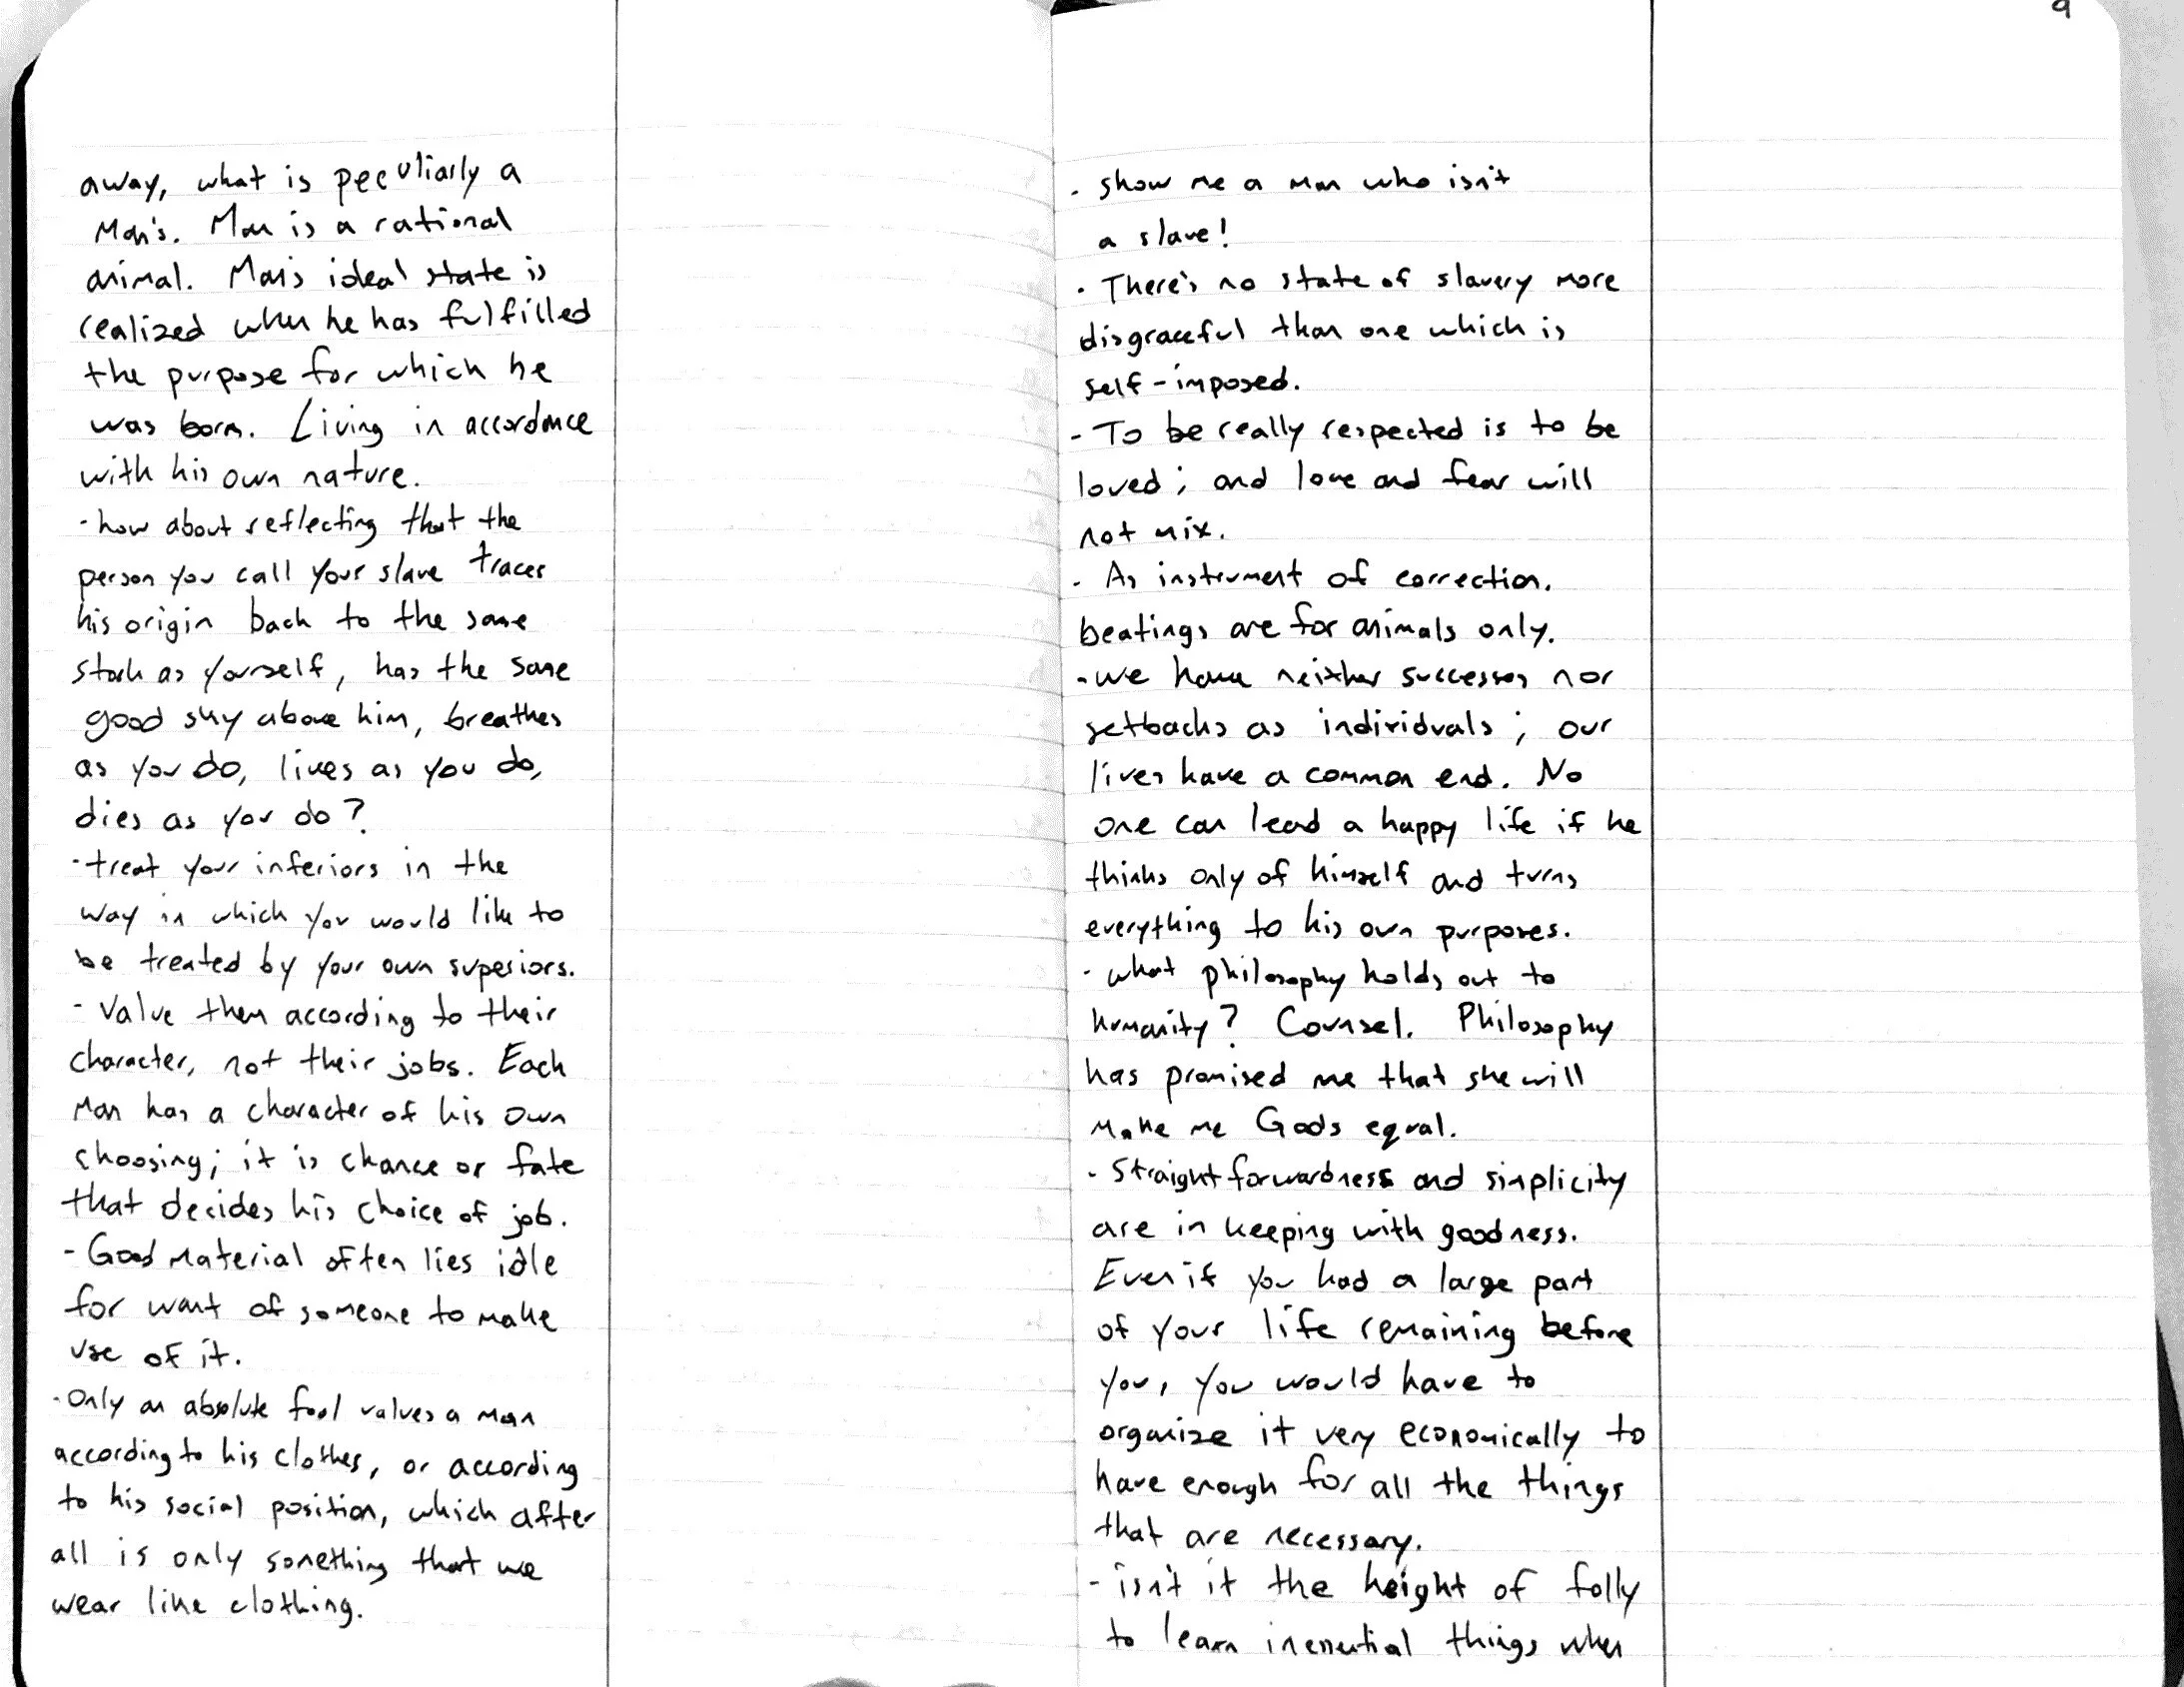 away, what is peculiarly a
Man's. Man is a rational
animal. Man's ideal state is
realized when he has fulfilled
the purpose for which he
was born. Living in accordance
with his own nature.
- how about reflecting that the
person you call your slave traces
his origin back to the same
stock as yourself, has the same
good sky above him, breathes
as you do, lives as you do,
dies as you do?
- treat your inferiors in the
way in which you would like to
be treated by your own superiors.
- Value them according to their
character, not their jobs. Each
Man has a character of his own
choosing; it is chance or fate
that decides his choice of job.
- Good material often lies idle
for want of someone to make
use of it.
- Only an absolute fool values a man
according to his clothes, or according
to his social position, which after
all is only something that we
wear like clothing.
9
- show me a man who isn't
a slave!
- There's no state of slavery more
disgraceful than one which is
self-imposed.
- To be really respected is to be
loved; and love and fear will
not mix.
- As instrument of correction.
beatings are for animals only.
- we have neither successes nor
setbacks as individuals; our
lives have a common end. No
one can lead a happy life if he
thinks only of himself and turns
everything to his own purposes.
- what philosophy holds out to
humanity? Counsel. Philosophy
has promised me that she will
make me Gods equal.
- Straightforwardness and simplicity
are in keeping with goodness.
Even if you had a large part
of your life remaining before
you, you would have to
organize it very economically to
have enough for all the things
that are necessary.
- isn't it the height of folly
to learn inessential things when